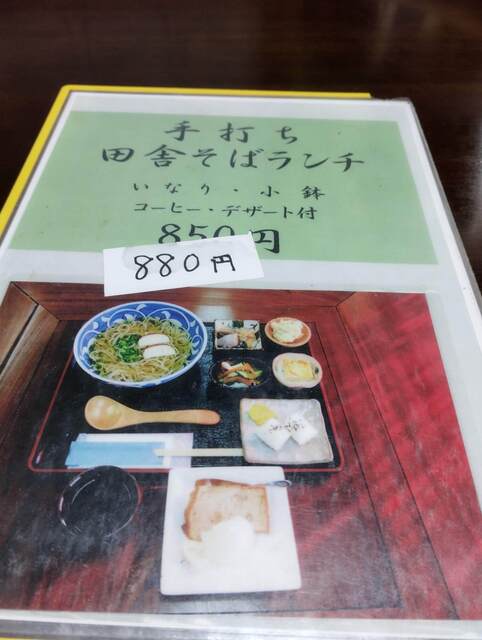 手打ち
田舎そばランチ
いなり・小鉢
コーヒー・デザート付
850円
880円